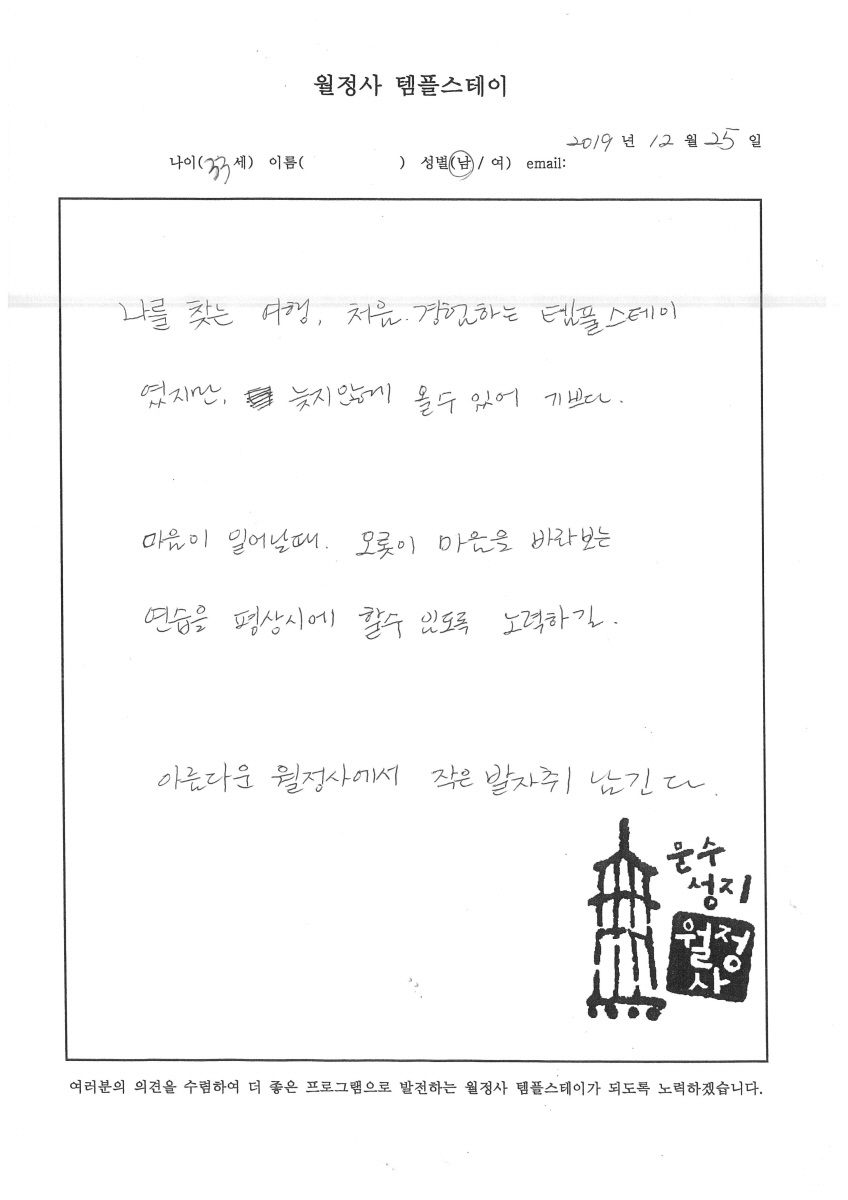 월정사 템플스테이
2019 년 12 월 25 일
나이(33세) 이름( ) 성별(남 / 여) email:
나를 찾는 여행, 처음 경험하는 템플스테이
였지만, 늦지않게 올수 있어 기쁘다.
마음이 일어날때. 오롯이 마음을 바라보는
연습을 평상시에 할수 있도록 노력하길.
아름다운 월정사에서 작은 발자취 남긴다.
문수
성지
월정
사
여러분의 의견을 수렴하여 더 좋은 프로그램으로 발전하는 월정사 템플스테이가 되도록 노력하겠습니다.